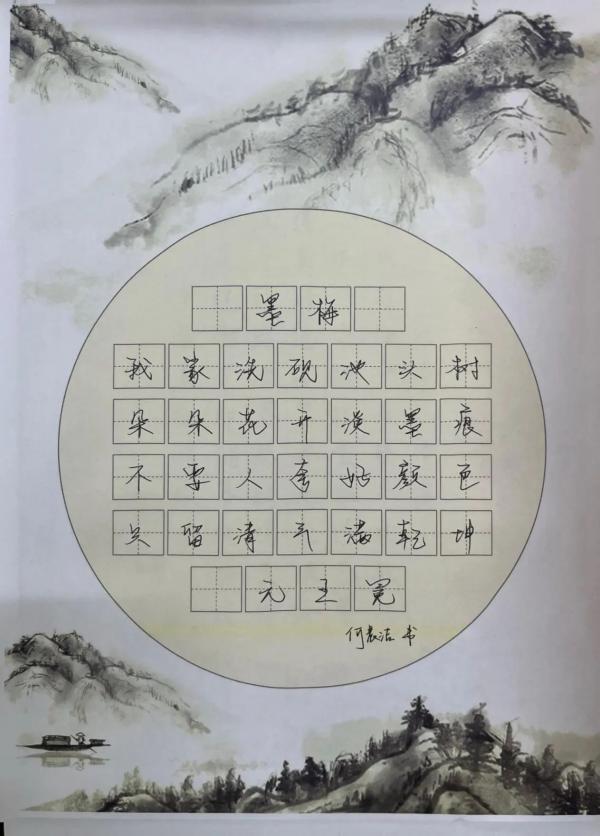 墨梅
我家洗砚池头树
朵朵花开淡墨痕
不要人夸好颜色
只留清气满乾坤
元王冕
何 洁 书